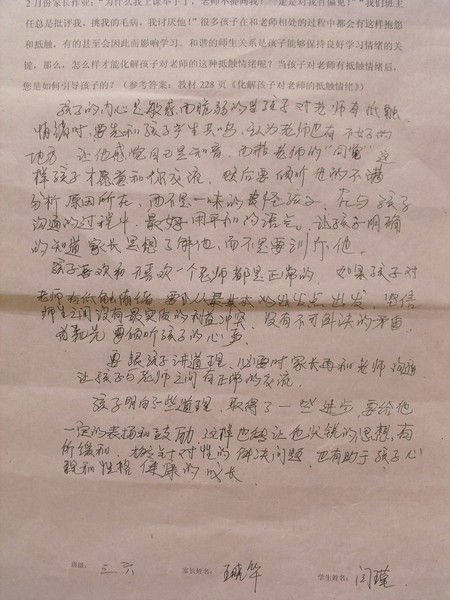 2月份家长作业:"为什么我上课举手了,老师不提问我?""一定是对我有偏见!""我们班主
任总是批评我,挑我的毛病,我讨厌他!"很多孩子在和老师相处的过程中都会有这样抱怨
和抵触,有的甚至会因此而影响学习。和谐的师生关系是孩子能够保持良好学习情绪的关
键,那么,怎么样才能化解孩子对老师的这种抵触情绪呢?当孩子对老师有抵触情绪后,
您是如何引导孩子的?(参考答案:教材 228 页《化解孩子对老师的抵触情绪》)
孩子的内心是敏感而脆弱的当孩子对老师有抵触
情绪时,要先和孩子产生共鸣,认为老师也有不好的
地方 让他感觉自己是知音,而非老师的"同党"这
样孩子才愿意和你交流,然后要倾听他的不满
分析原因所在,而不是一味的责怪孩子,在与孩子
沟通的过程中,最好用平和的语气,让孩子明确
的知道家长是想了解他,而不是要训斥他。
孩子喜欢和不喜欢一个老师都是正常的,如果孩子对
老师有低触情绪 要从的出发点出发,坚信
师生之间没有最实质的利益冲突,没有不可解决的矛盾
为起先要倾听孩子的心声
要跟孩子讲道理,必要时家长再和老师沟通
让孩子与老师之间有正常的交流,
孩子明白了一些道理,取得了一些进步,要给他
一定的表扬和鼓励 这样也能让他尖锐的思想,有
所缓和,针对性的解决问题,也有助于孩子心
理和性格健康的成长
班级: 三六 家长姓名: 王晓华 学生姓名: 闫瑾